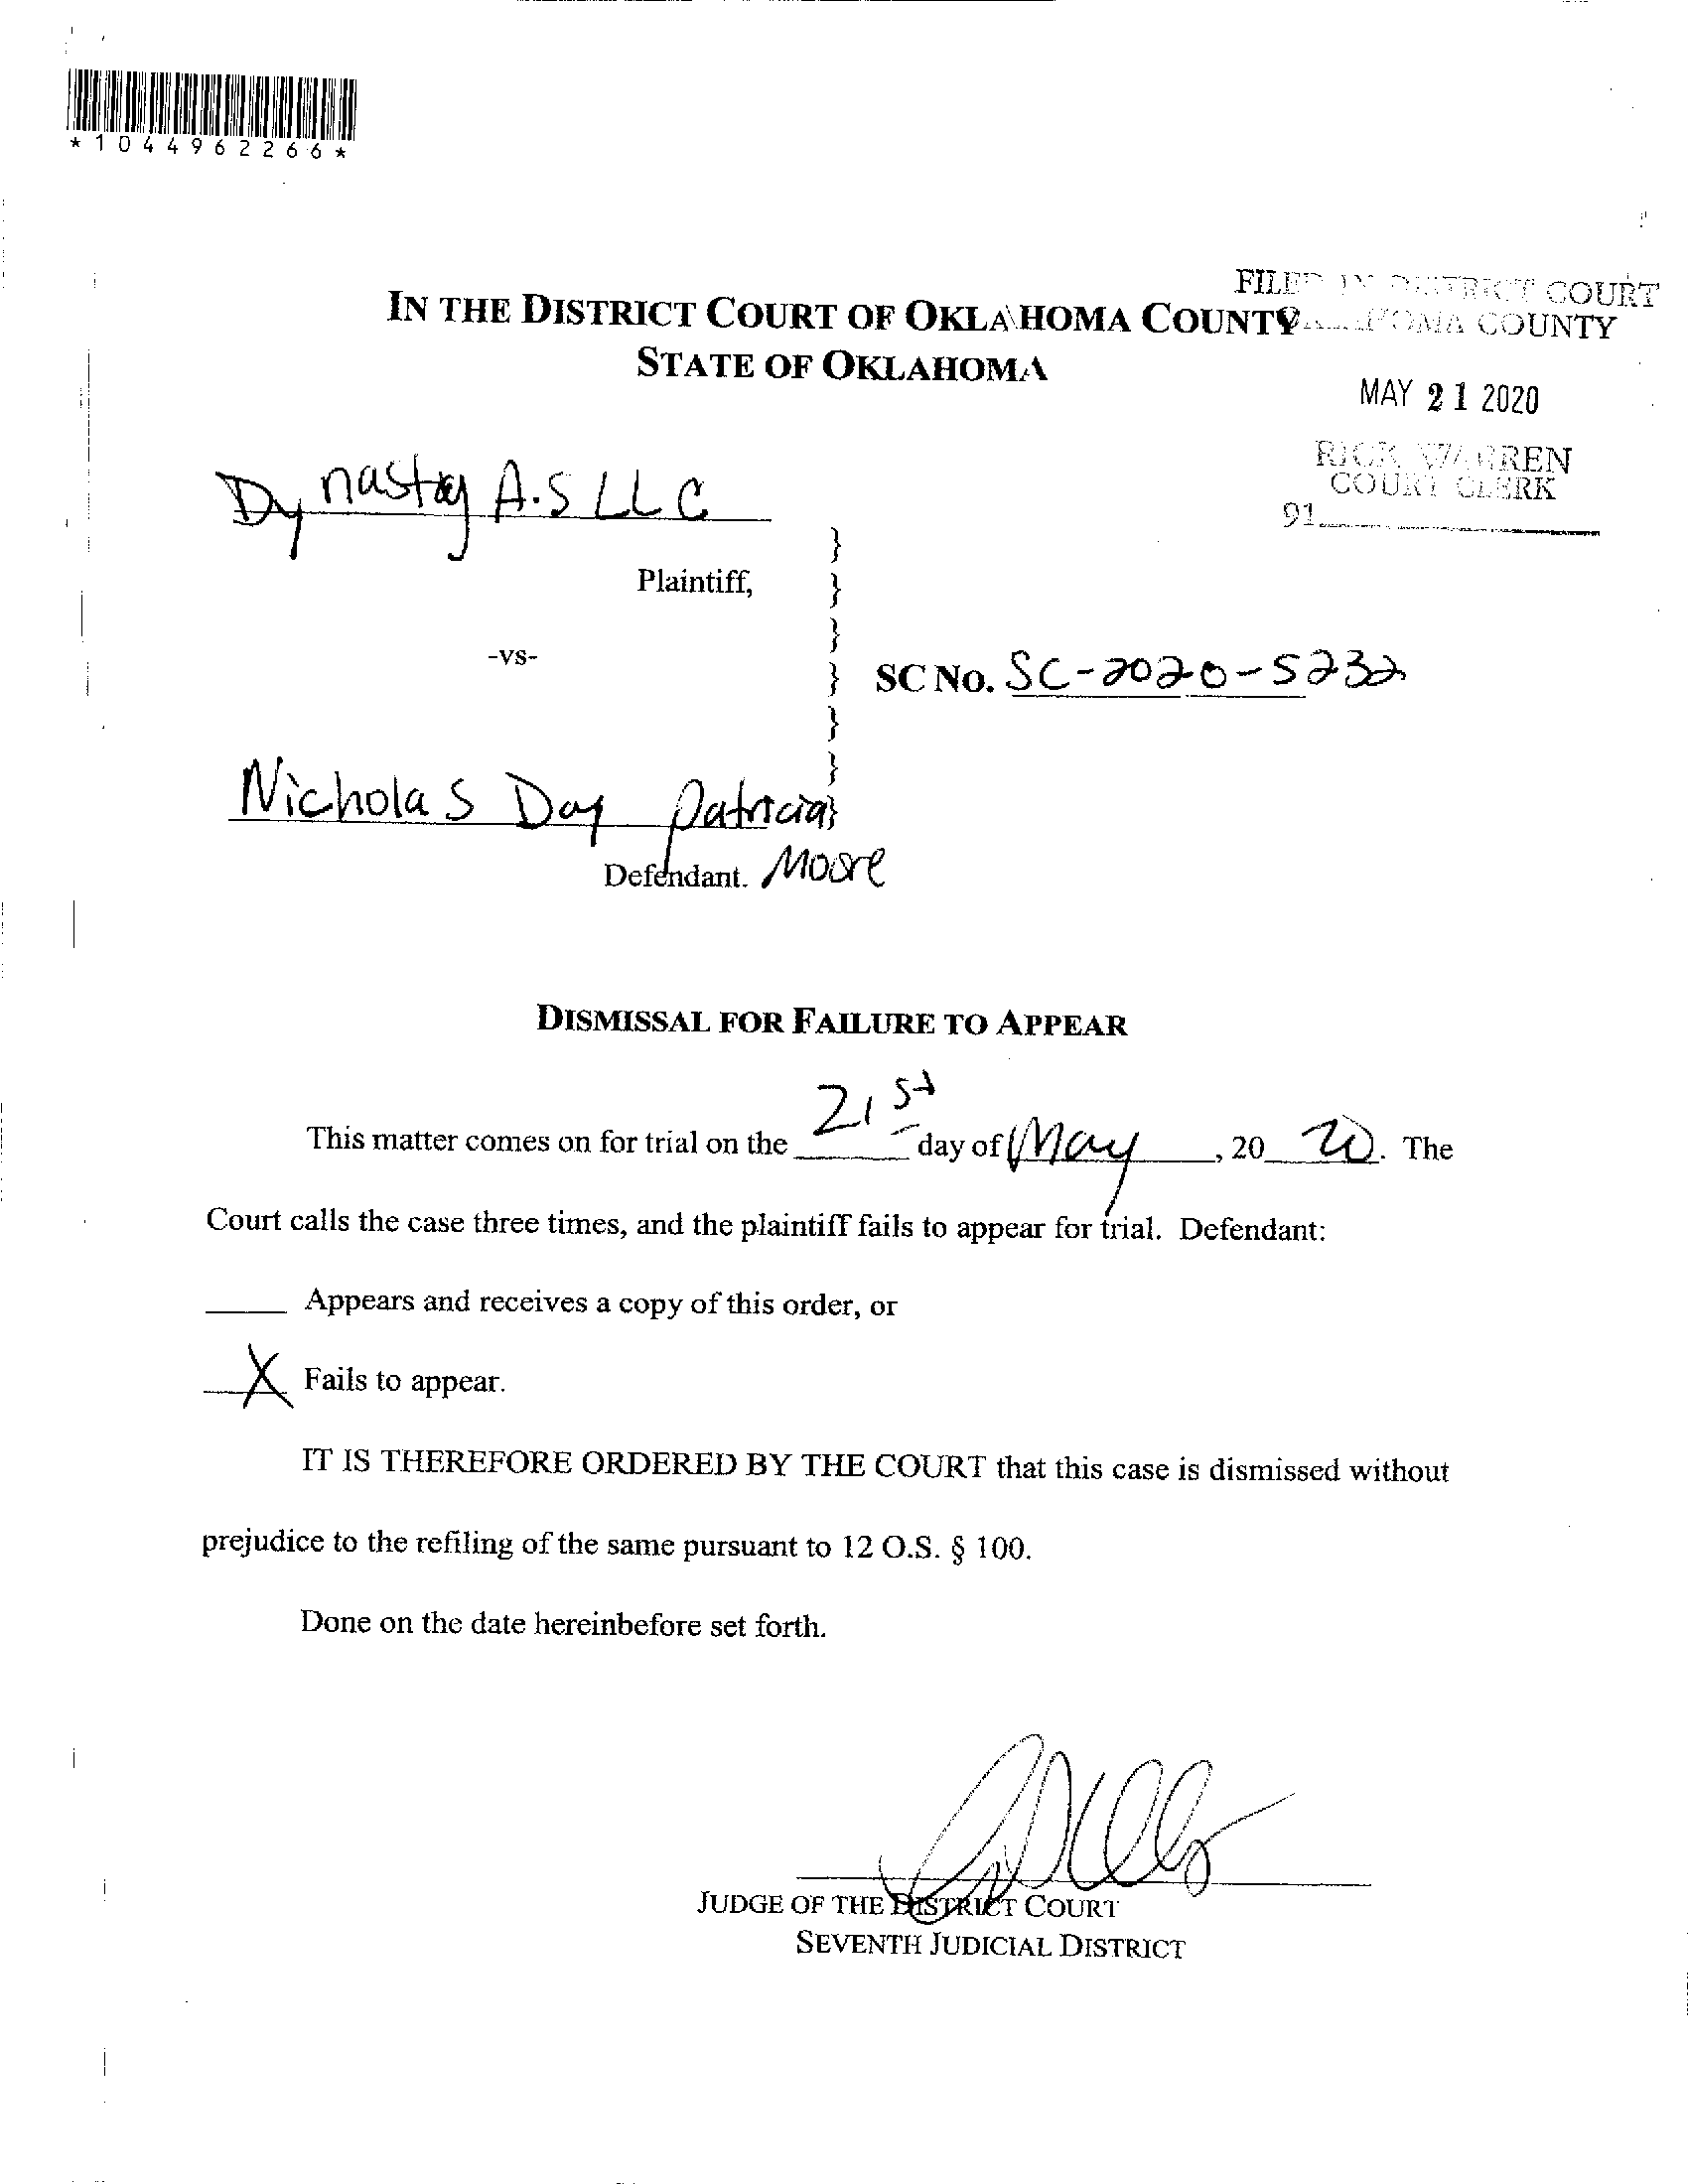 *1044962266*
FILED IN DISTRICT COURT
IN THE DISTRICT COURT OF OKLAHOMA COUNTY
OKLAHOMA COUNTY
STATE OF OKLAHOMA
MAY 21 2020
RICK WARREN
COURT CLERK
91
Dynasty A.S LLC
}
Plaintiff,
}
}
-vs-
} SC No. SC-2020-5232
}
}
Nicholas Day Patricia }
Defendant. Moore
DISMISSAL FOR FAILURE TO APPEAR
This matter comes on for trial on the 21st day of May, 2020. The
Court calls the case three times, and the plaintiff fails to appear for trial. Defendant:
____ Appears and receives a copy of this order, or
X Fails to appear.
IT IS THEREFORE ORDERED BY THE COURT that this case is dismissed without
prejudice to the refiling of the same pursuant to 12 O.S. § 100.
Done on the date hereinbefore set forth.
JUDGE OF THE DISTRICT COURT
SEVENTH JUDICIAL DISTRICT